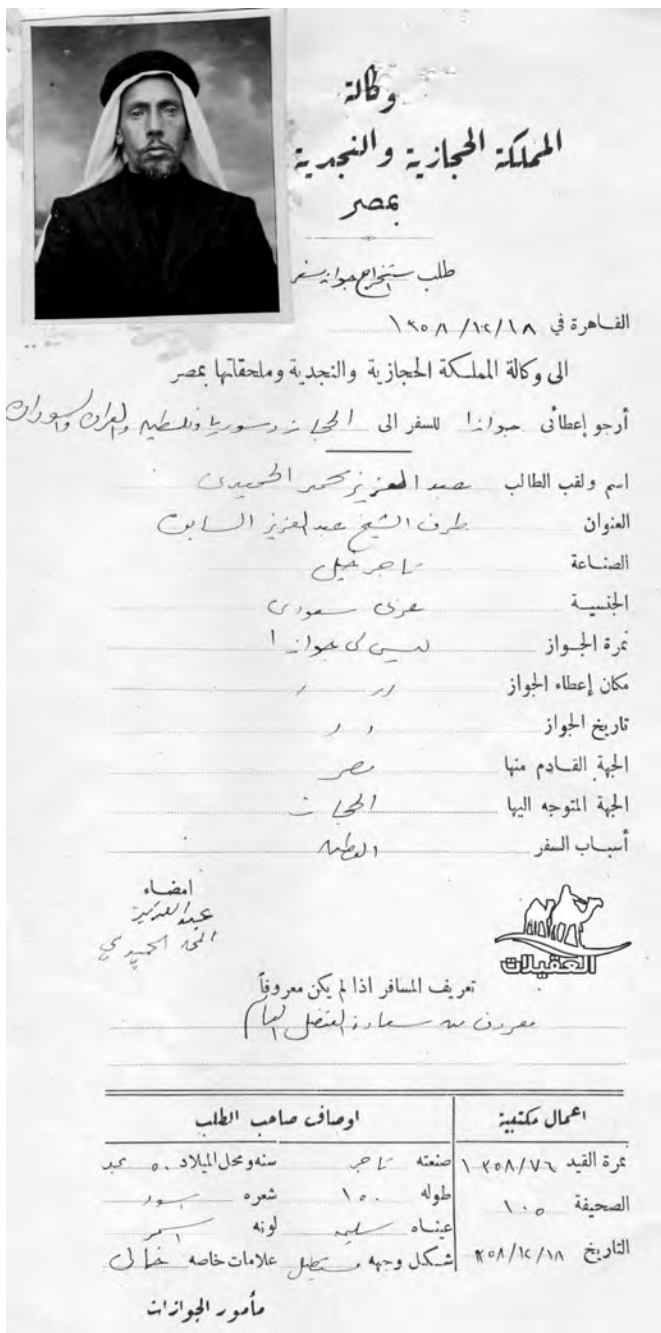 وكالة
المملكة الحجازية والنجدية
بمصر
طلب استخراج جواز سفر
القاهرة في ١٣٥٨/١٢/١٨
الى وكالة المملكة الحجازية والنجدية وملحقاتها بمصر
أرجو إعطائى جوازا للسفر الى الحجاز وسوريا وفلسطين والعراق والسودان
اسم ولقب الطالب عبد العزيز محمد الحميدى
العنوان طرف الشيخ عبد العزيز
الصناعة تاجر خيل
الجنسية عربى سعودى
نمرة الجواز ليس لى جوازا
مكان إعطاء الجواز
تاريخ الجواز
الجهة القادم منها مصر
الجهة المتوجه اليها الحجاز
أسباب السفر
امضاء
عبدالعزيز
المحمد الحميدي
العقيلات
تعريف المسافر اذا لم يكن معروفاً
معروف من سعادة القنصل العام
اعمال مكتبية اوصاف صاحب الطلب
نمرة القيد ١٣٥٨/٧٦ صنعته تاجر سنه ومحل الميلاد ٥٠
الصحيفة ١٠٥ طوله ١٥٠ شعره اسود
عيناه سليمه لونه اسمر
التاريخ ٣٥٨/١٢/١٨ شكل وجهه مستطيل علامات خاصه خالى
مأمور الجوازات